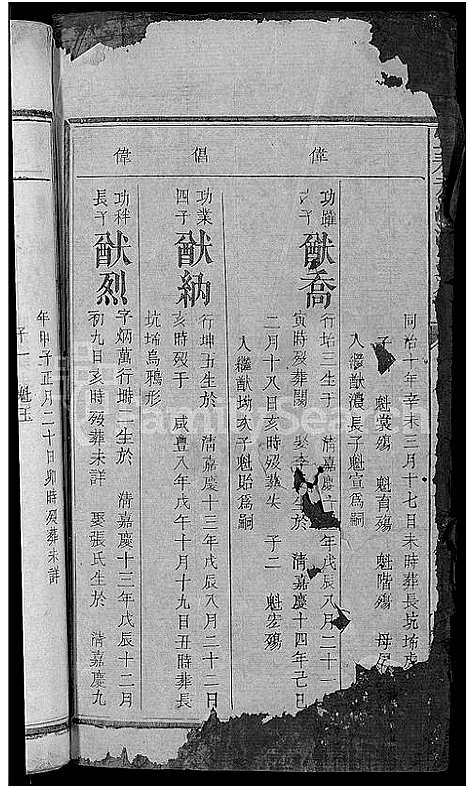 偉
倡
偉
同治十年辛未三月十七日未時葬長坑垇
子一 魁裳殤 魁育殤 魁喈殤 母
入繼猷濃長子魁宣為嗣
功
猷喬
行垳三生於 清嘉慶十 年戊辰八月二十一
寅時歿葬關 於 清嘉慶十四年己巳
二月十八日亥時歿葬失 子二 魁宏殤
入繼猷坳次子魁貽為嗣
功業
四子
猷納
行坤五生於 清嘉慶十三年戊辰八月二十二日
亥時歿于 咸豐八年戊午十月十九日丑時葬長
坑塆烏鴉形
功秤
長子
猷烈
字炳萬行塒一生於 清嘉慶十三年戊辰十二月
初九日亥時歿葬未詳 娶張氏生於 清嘉慶九
年甲子正月二十日卯時歿葬未詳
子一 魁玉
FamilySearch